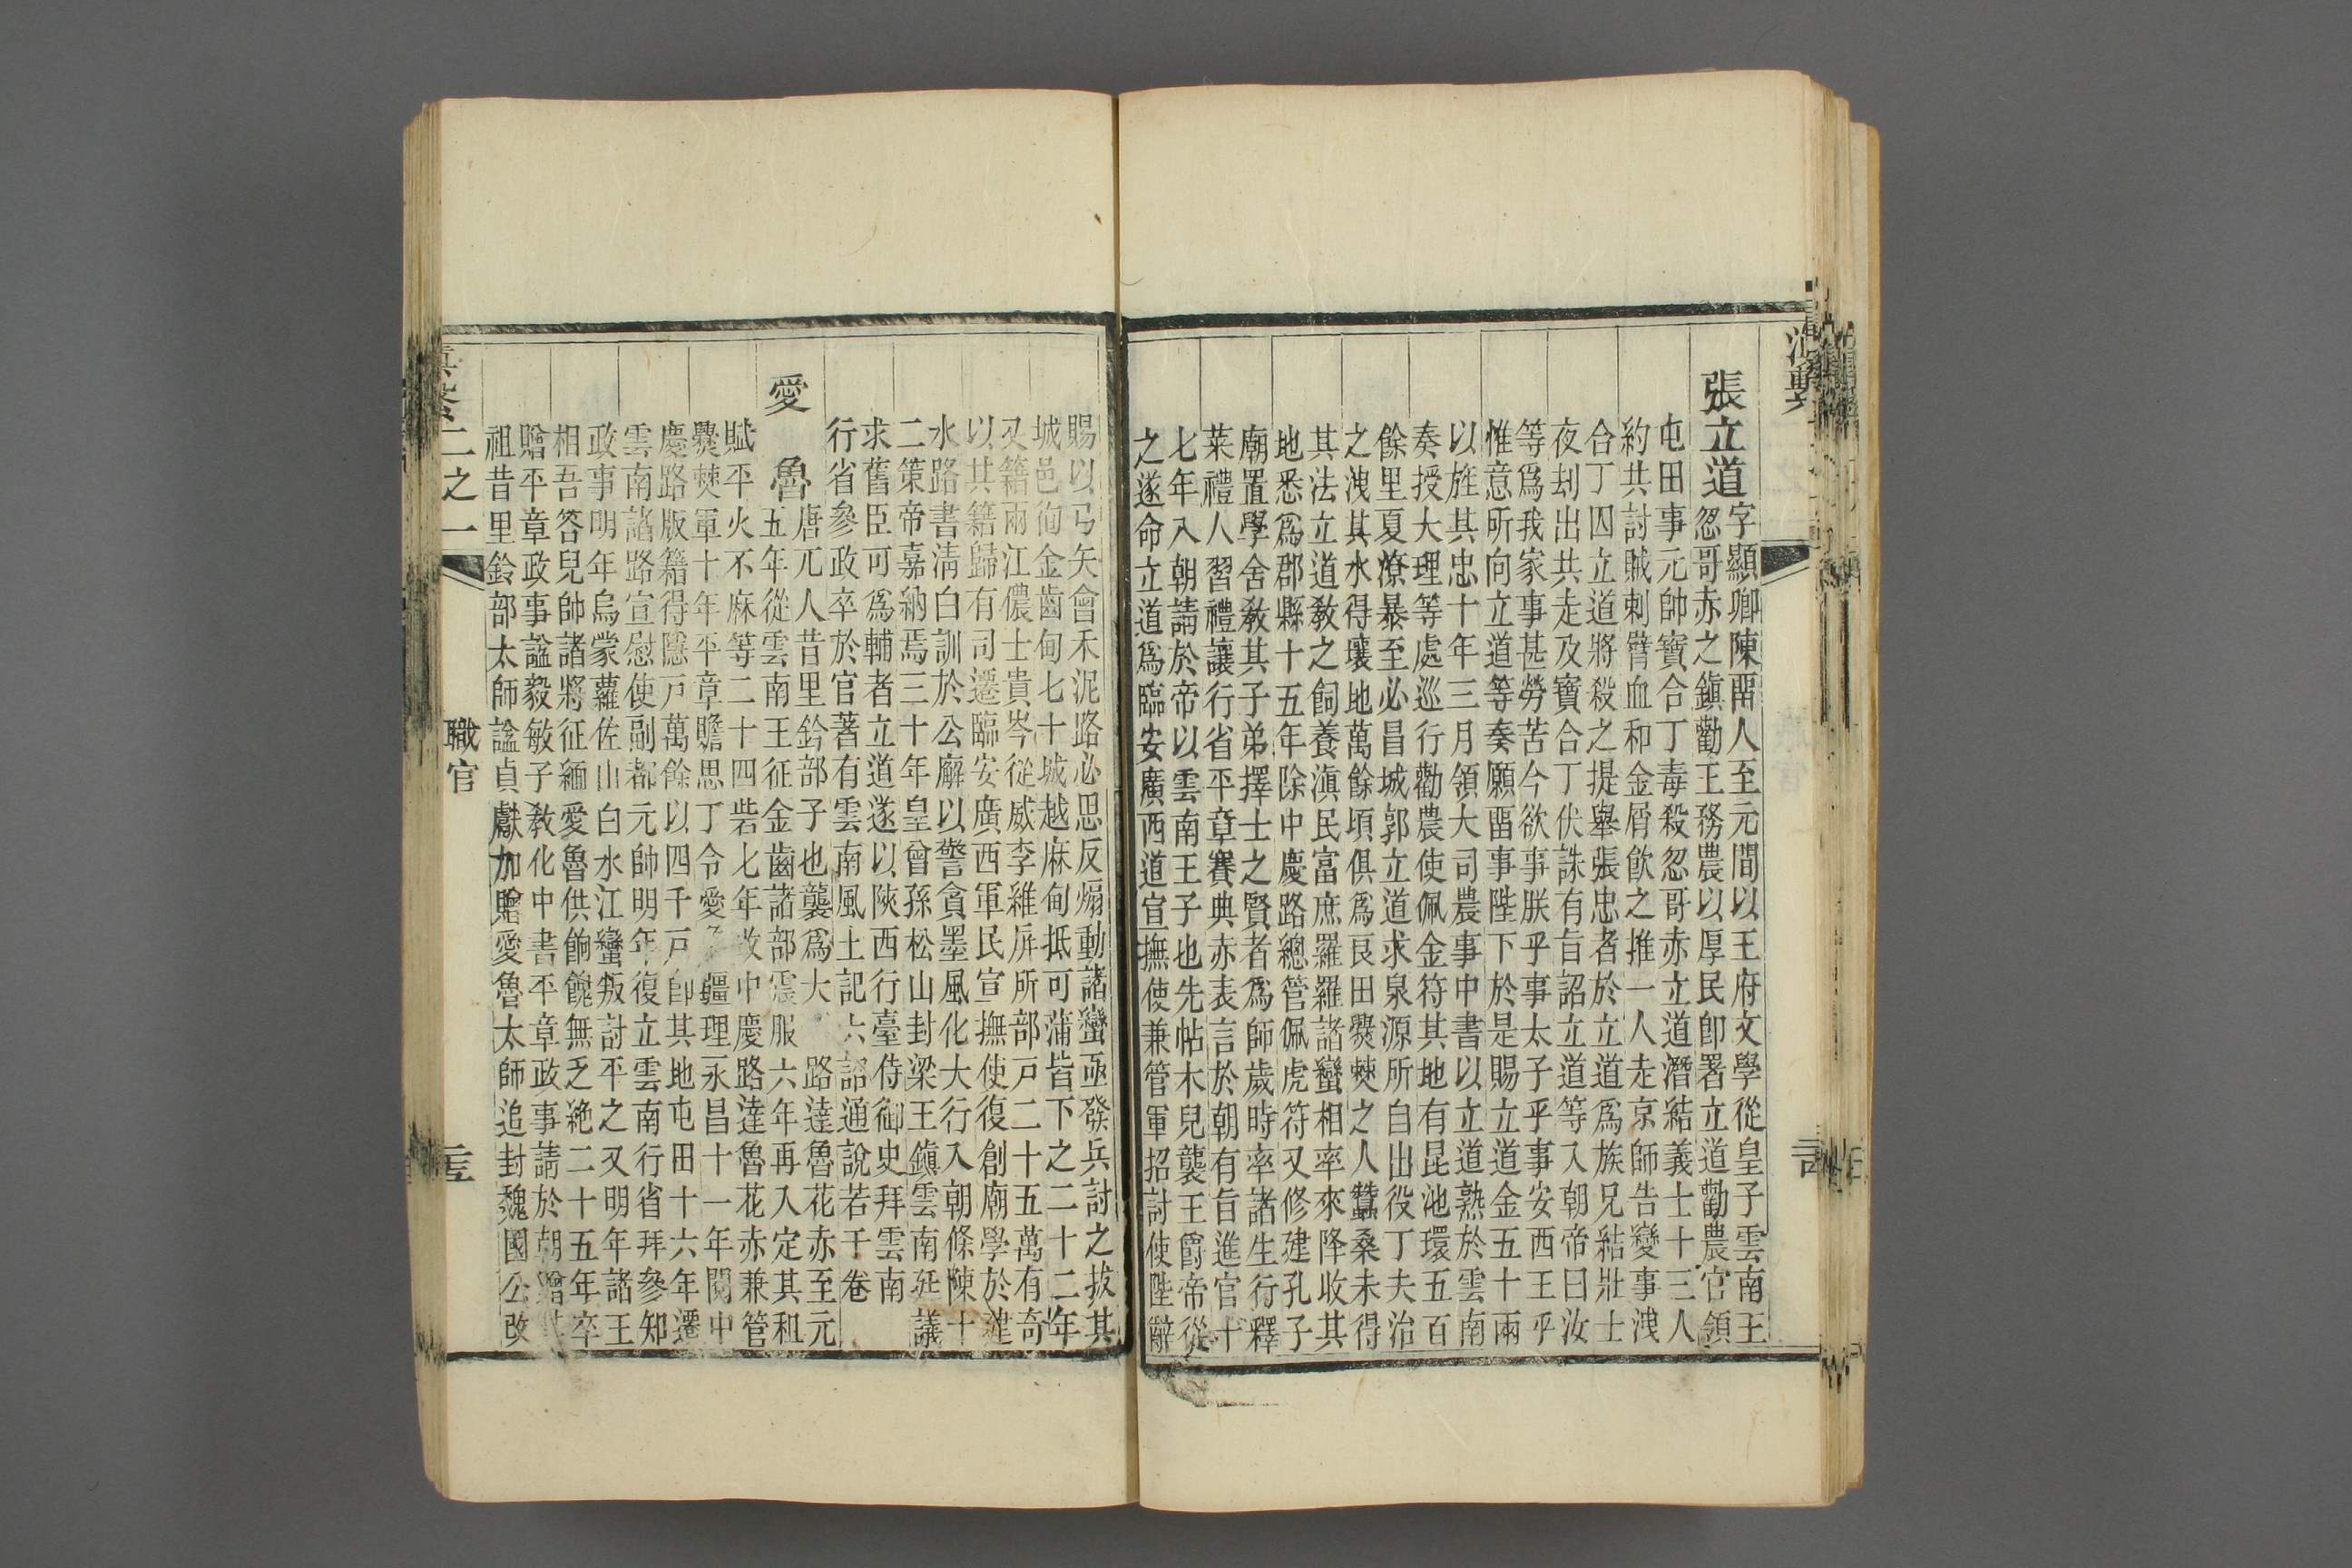 張立道字顯卿陳畱人至元間以王府文學從皇子雲南王
忽哥赤之鎭勸王務農以厚民卽署立道勸農官領
屯田事元帥寶合丁毒殺忽哥赤立道潛結義士十三人
約共討賊刺臂血和金屑飲之推一人走京師告變事洩
合丁囚立道將殺之提舉張忠者於立道爲族兄結壯士
夜刧出共走及寶合丁伏誅有旨詔立道等入朝帝曰汝
等爲我家事甚勞苦今欲事朕乎事太子乎事安西王乎
惟意所向立道等奏願畱事陛下於是賜立道金五十兩
以旌其忠十年三月領大司農事中書以立道熟於雲南
奏授大理等處巡行勸農使佩金符其地有昆池環五百
餘里夏潦暴至必昌城郭立道求泉源所自出役丁夫治
之洩其水得壤地萬餘頃俱爲良田爨僰之人蠶桑未得
其法立道敎之飼養滇民富庶羅羅諸蠻相率來降收其
地悉爲郡縣十五年除中慶路總管佩虎符又修建孔子
廟置學舍敎其子弟擇士之賢者爲師歲時率諸生行釋
菜禮人習禮讓行省平章賽典赤表言於朝有旨進官十
七年入朝請於帝以雲南王子也先帖木兒襲王爵帝從
之遂命立道爲臨安廣西道宣撫使兼管軍招討使陛辭
賜以弓矢會禾泥路必思反煽動諸蠻亟發兵討之拔其
城邑徇金齒甸七十城越麻甸抵可蒲皆下之二十二年
又籍兩江儂士貴岑從威李維屏所部戸二十五萬有奇
以其籍歸有司遷臨安廣西軍民宣撫使復創廟學於建
水路書淸白訓於公廨以警貪墨風化大行入朝條陳十
二策帝嘉納焉三十年皇曾孫松山封梁王鎭雲南廷議
求舊臣可爲輔者立道遂以陝西行臺侍御史拜雲南
行省參政卒於官著有雲南風土記六詔通說若干卷
愛　魯唐兀人昔里鈐部子也襲爲大　路達魯花赤至元
五年從雲南王征金齒諸部震服六年再入定其租
賦平火不麻等二十四砦七年改中慶路達魯花赤兼管
爨僰軍十年平章贍思丁令愛　疆理永昌十一年閱中
慶路版籍得隱戸萬餘以四千戸卽其地屯田十六年遷
雲南諸路宣慰使副都元帥明年復立雲南行省拜參知
政事明年烏蒙羅佐山白水江蠻叛討平之又明年諸王
相吾答兒帥諸將征緬愛魯供餉餽無乏絶二十五年卒
贈平章政事諡毅敏子敎化中書平章政事請於朝贈其
祖昔里鈐部太師諡貞獻加贈愛魯太師追封魏國公改
二之一　職官